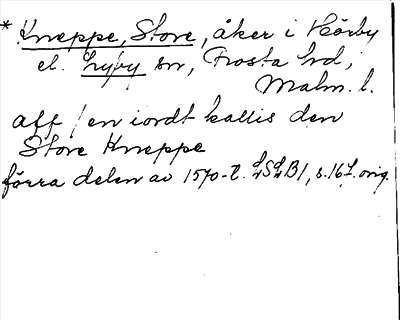 * Kneppe, Store, åker i Hörby
el. Lyby sn, Frosta hd,
Malm. l.
aff / en iordt kallis den
Store Kneppe
förra delen av 1570-t. LSLB1, s. 16 f. orig.